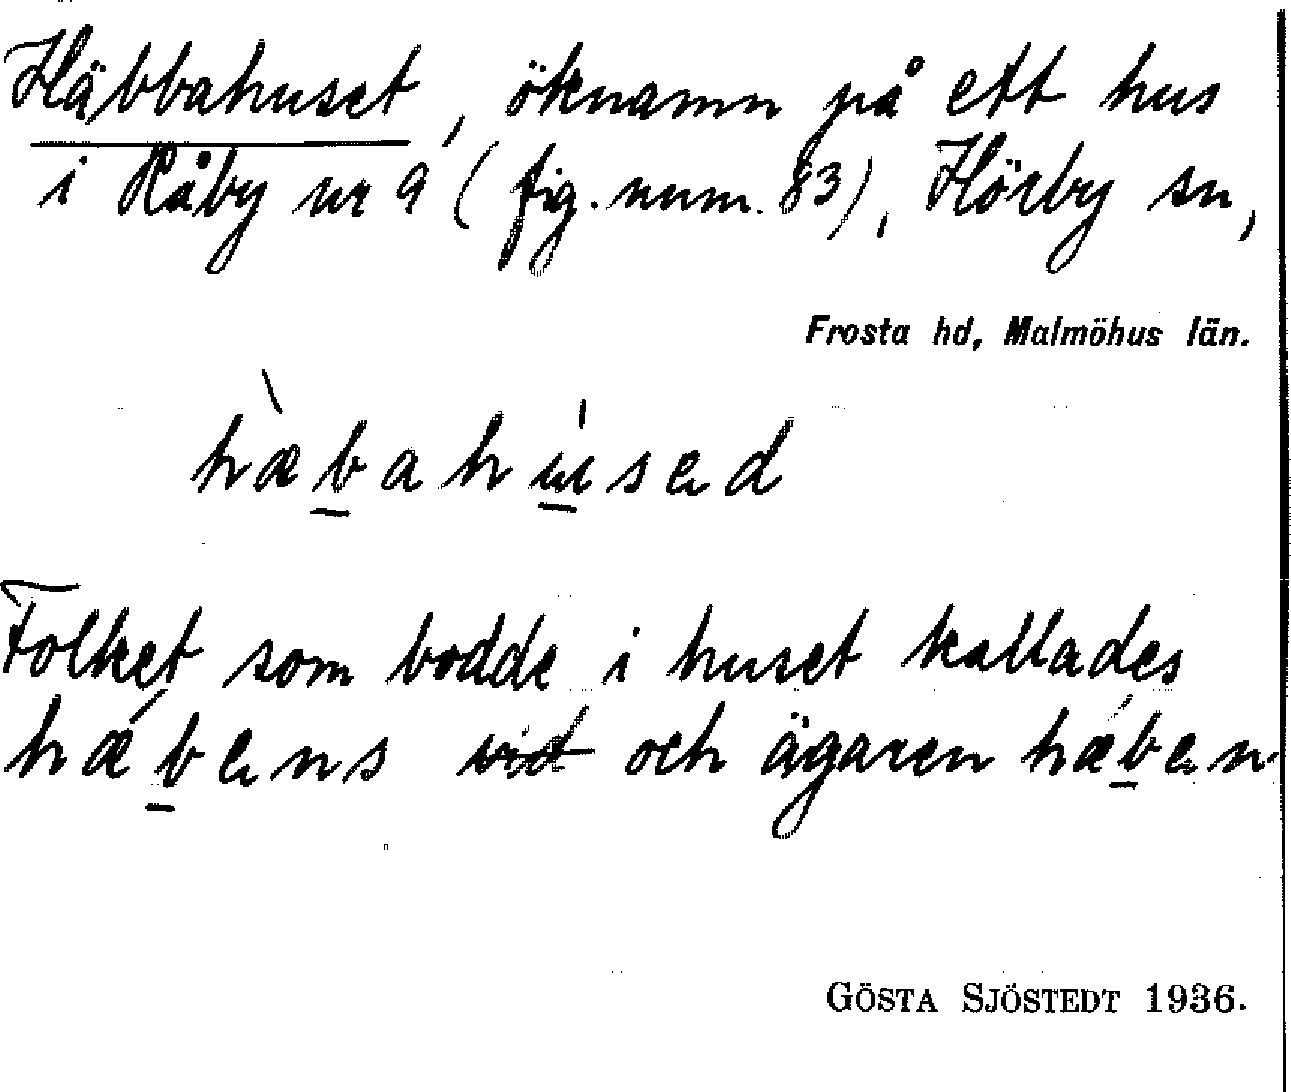 Häbbahuset, öknamn på ett hus
i Råby nr 9 (fig. num. 83), Hörby sn,
Frosta hd, Malmöhus län.
hæ̀bahúsed
Folket som bodde i huset kallades
hǽbens ~~vid~~ och ägaren hǽben
GÖSTA SJÖSTEDT 1936.